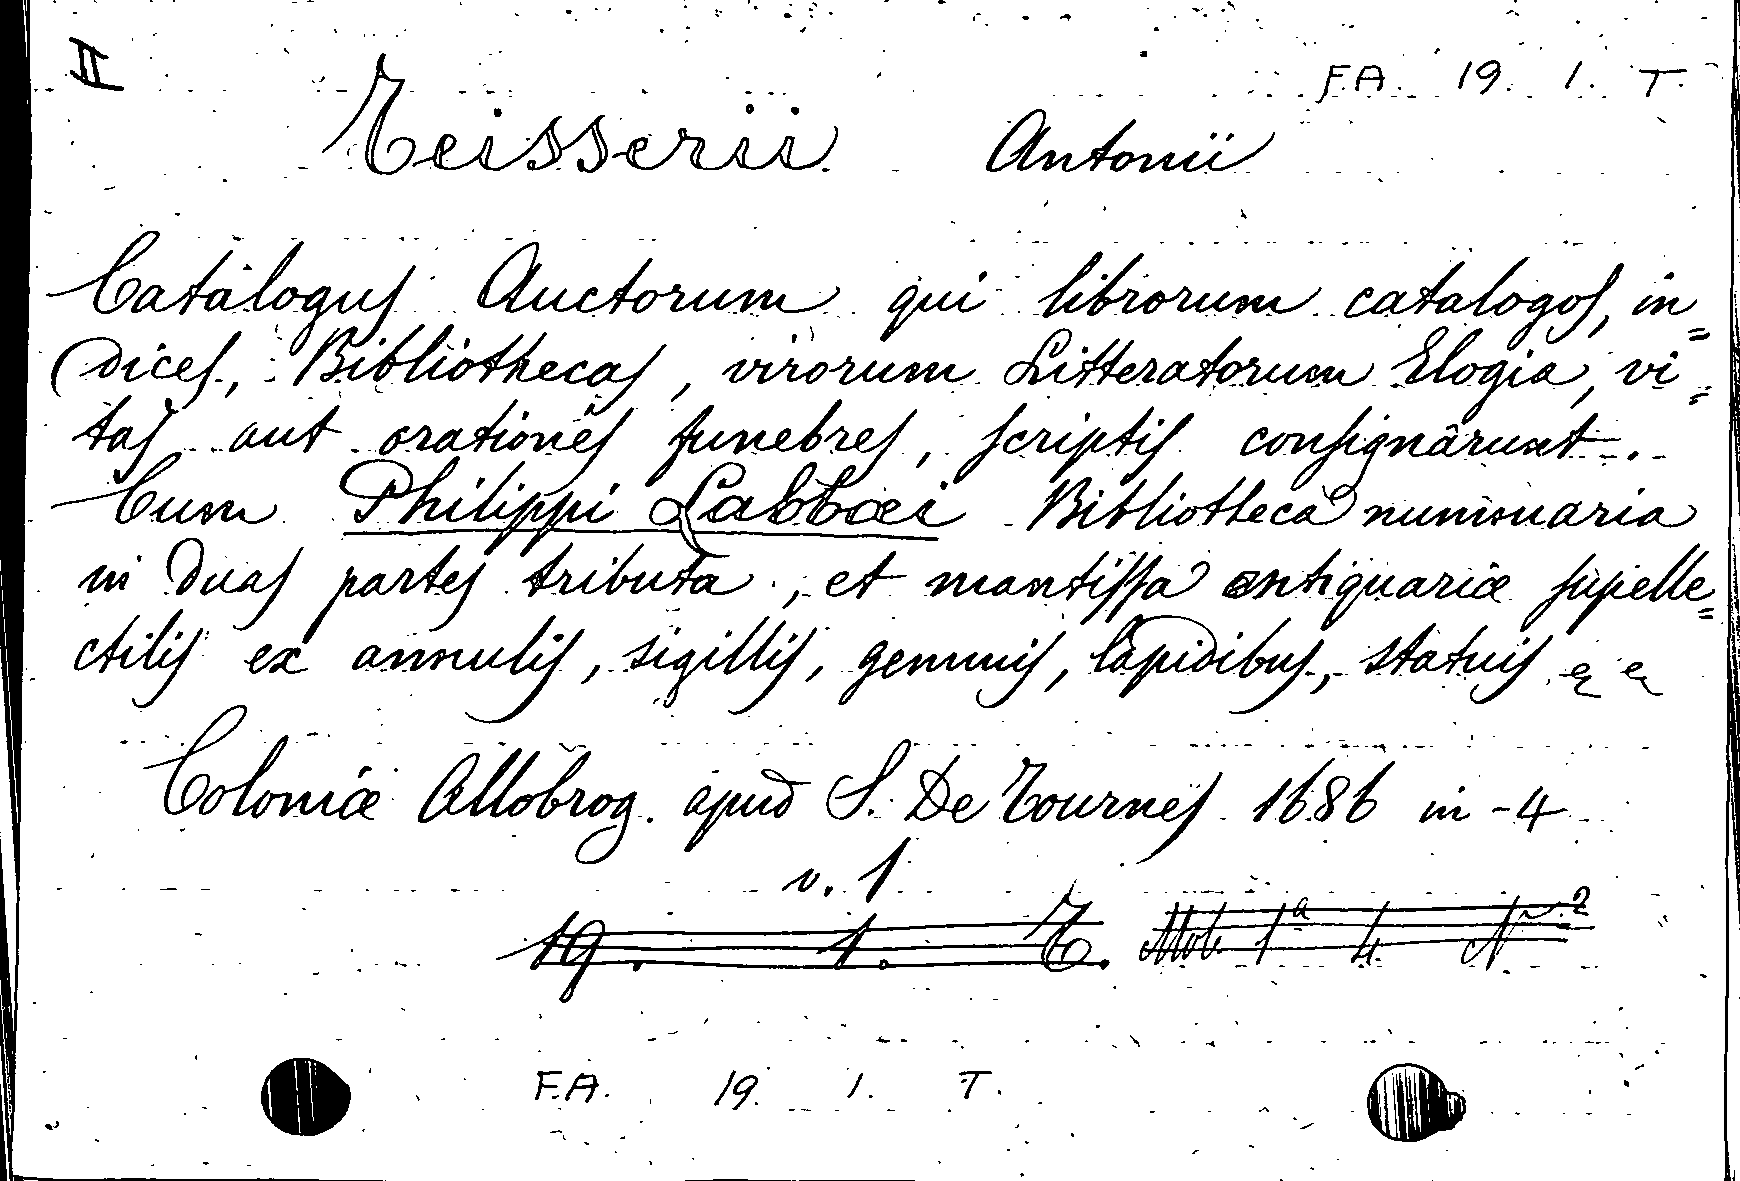 II
F.A. 19. 1. T.
Teisserii Antonii
Catalogus Auctorum qui librorum catalogos, in=
dices, Bibliothecas, virorum Litteratorum Elogia, vi=
tas aut orationes funebres, scriptis consignârunt.
Cum Philippi Labbæi Bibliotheca nummaria
in duas partes tributa, et mantissa antiquariæ supelle=
ctilis ex annulis, sigillis, gemmis, lapidibus, statuis
Coloniæ Allobrog. apud S. De Tournes 1686 in-4
v. 1
19. 1. T. 1ª 4
F.A. 19. 1. T.